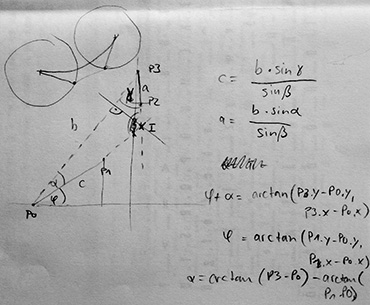 P3
a
γ
P2
b
β
I
α
c
P1
φ
P0
c = b·sinγ / sinβ
a = b·sinα / sinβ
φ+α = arctan(P3.y-P0.y,
P3.x-P0.x)
φ = arctan(P1.y-P0.y,
P1.x-P0.x)
α = arctan(P3-P0) - arctan(
P1-P0)